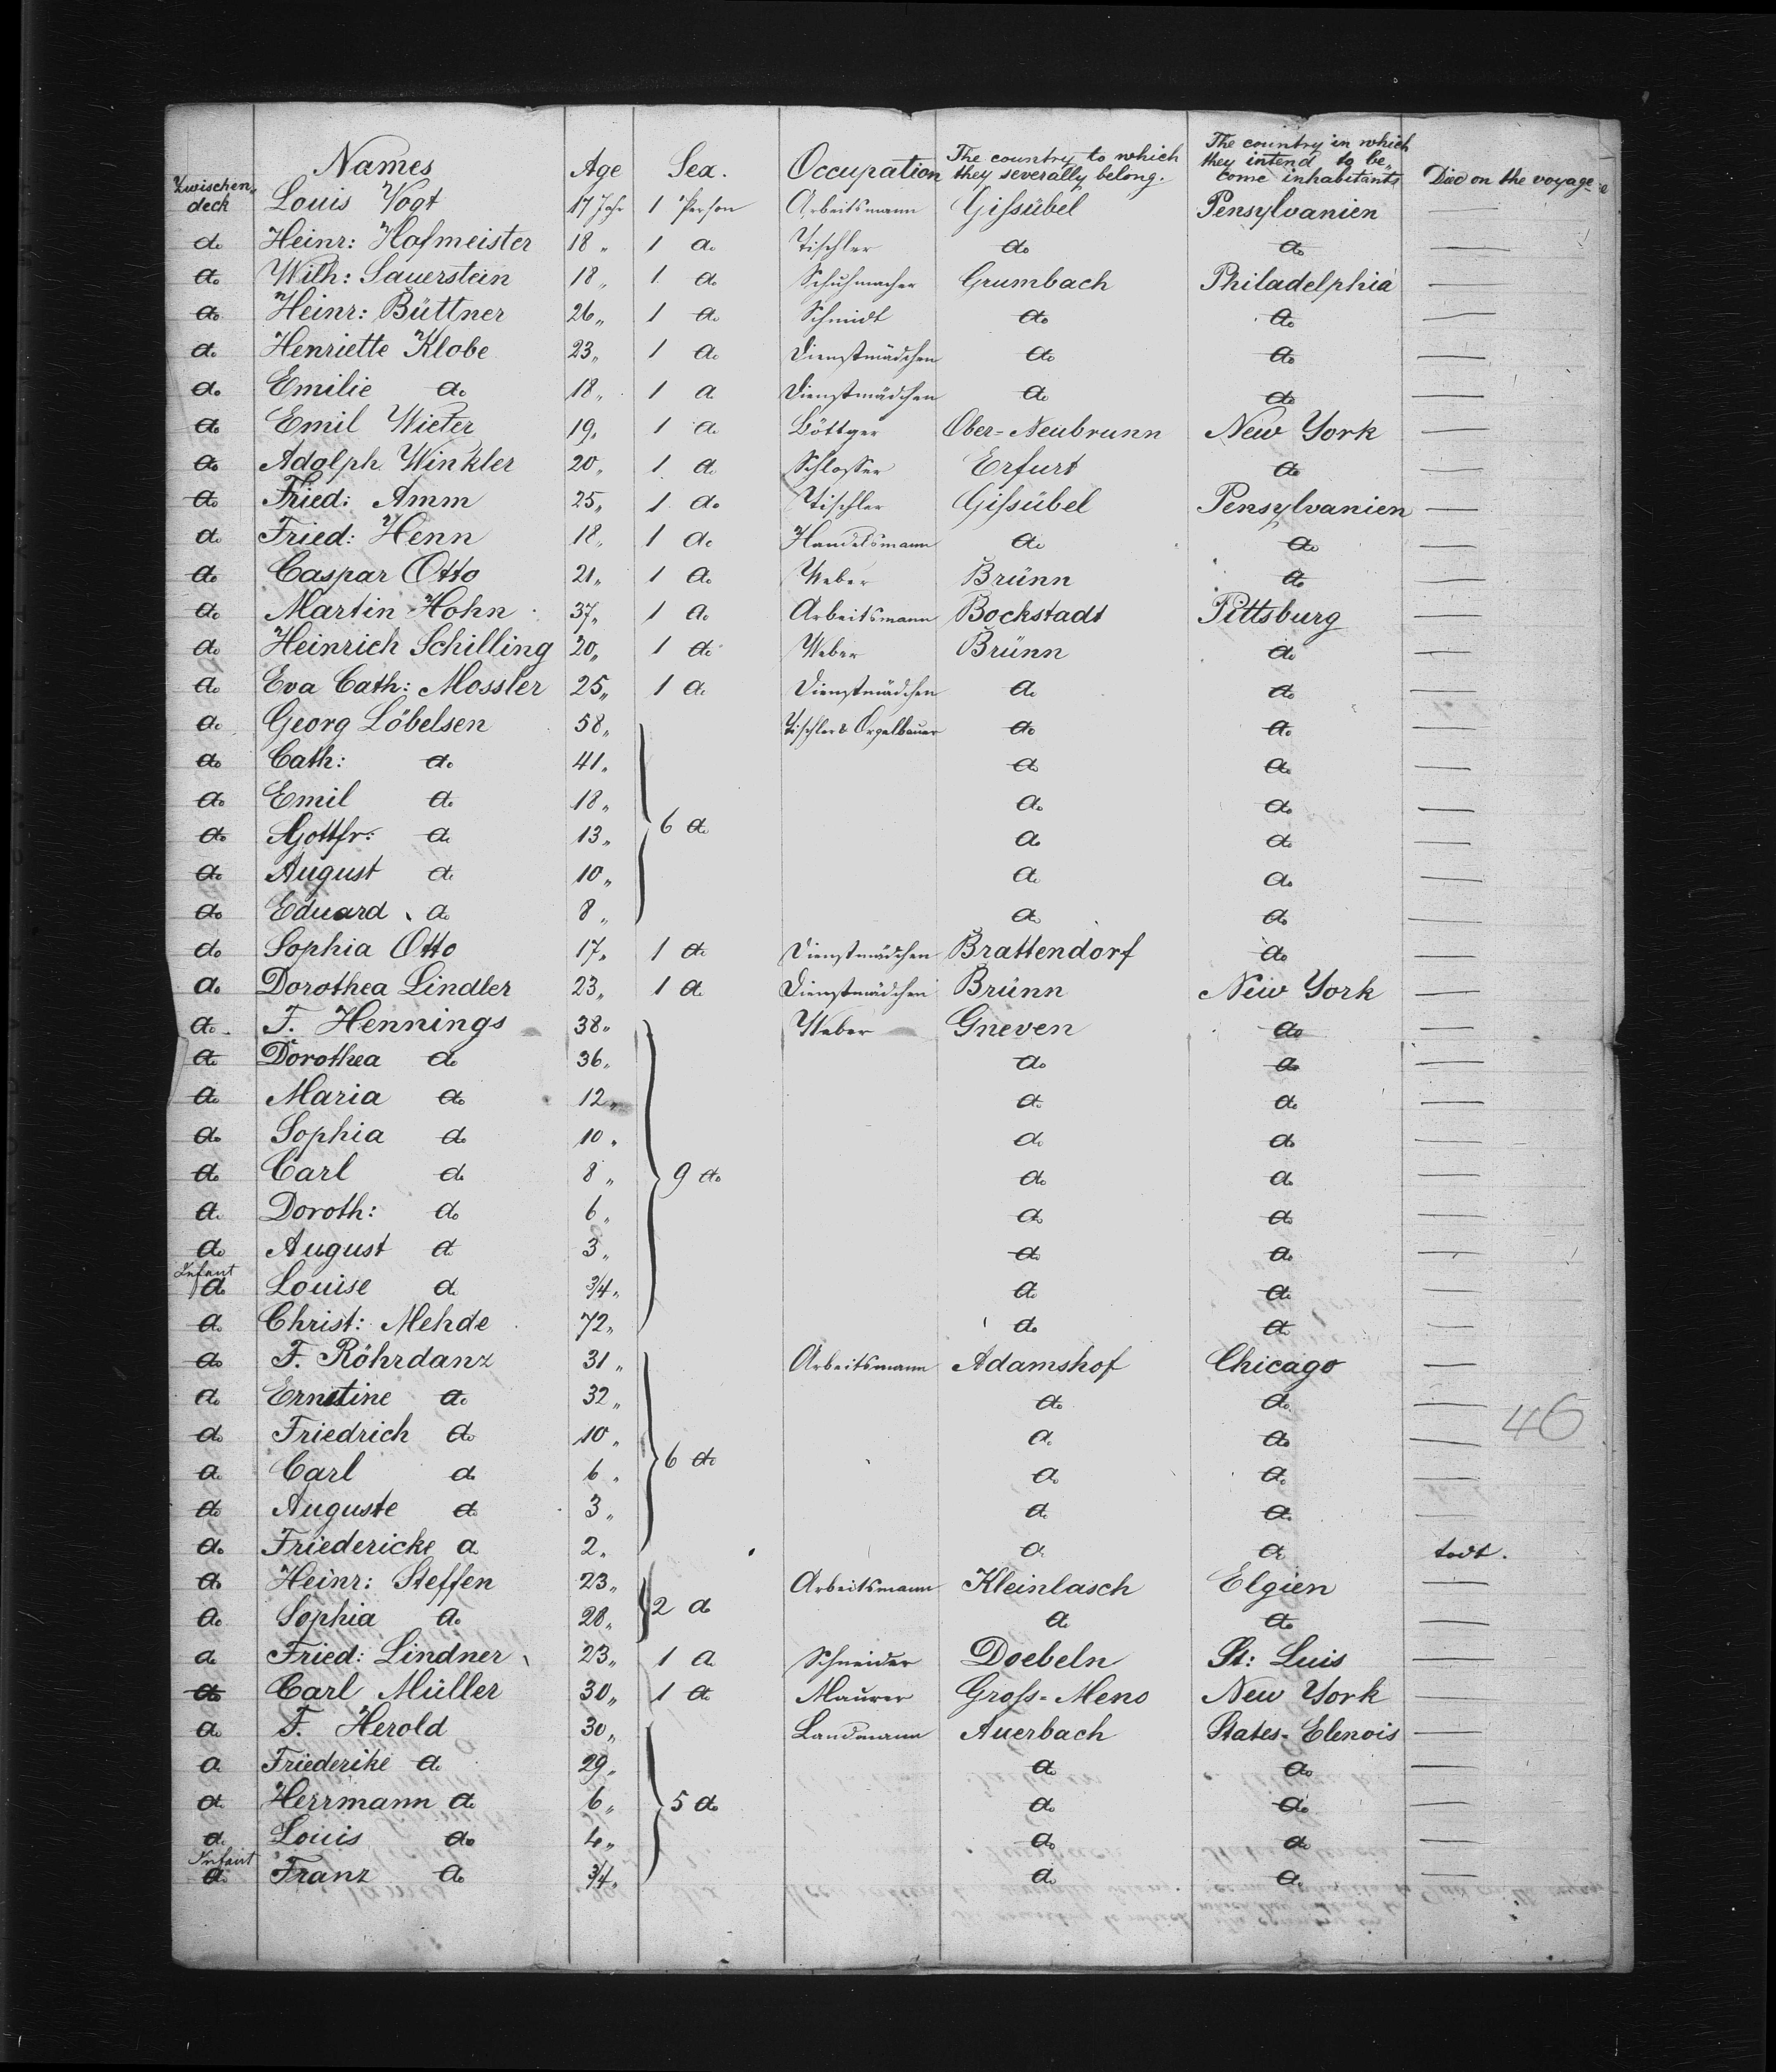 Names Age Sex. Occupation The country to which they severally belong. The country in which they intend to be„come inhabitants Died on the voyage
Zwischen„deck Louis Vogt 17 Jahr 1 Person Arbeitsmann Gißübel Pensylvanien —
do Heinr: Hofmeister 18 „ 1 do Tischler do do —
do Wilh: Sauerstein 18 „ 1 do Schuhmacher Grumbach Philadelphia —
do Heinr: Büttner 26 „ 1 do Schmidt do do —
do Henriette Klobe 23 „ 1 do Dienstmädchen do do —
do Emilie do 18 „ 1 do Dienstmädchen do do —
do Emil Wieter 19 „ 1 do Böttger Ober-Neubrunn New York —
do Adolph Winkler 20 „ 1 do Schlosser Erfurt do —
do Fried: Amm 25 „ 1 do Tischler Gißübel Pensylvanien —
do Fried: Henn 18 „ 1 do Handelsmann do do —
do Caspar Otto 21 „ 1 do Weber Brünn do —
do Martin Hohn 37 „ 1 do Arbeitsmann Bockstadt Pittsburg —
do Heinrich Schilling 20 „ 1 do Weber Brünn do —
do Eva Cath: Mossler 25 „ 1 do Dienstmädchen do do —
do Georg Löbelsen 58 „ Tischler & Orgelbauer do do —
do Cath: do 41 „ do do —
do Emil do 18 „ do do —
do Gottfr: do 13 „ 6 do do do —
do August do 10 „ do do —
do Eduard do 8 „ do do —
do Sophia Otto 17 „ 1 do Dienstmädchen Brattendorf do —
do Dorothea Lindler 23 „ 1 do Dienstmädchen Brünn New York —
do F. Hennings 38 „ Weber Gneven do —
do Dorothea do 36 „ do do —
do Maria do 12 „ do do —
do Sophia do 10 „ do do —
do Carl do 8 „ 9 do do do —
do Doroth: do 6 „ do do —
do August do 3 „ do do —
Infant do Louise do 3/4 „ do do —
do Christ: Mehde 72 „ do do —
do F. Röhrdanz 31 „ Arbeitsmann Adamshof Chicago —
do Ernstine do 32 „ do do —
46
do Friedrich do 10 „ do do —
do Carl do 6 „ 6 do do do —
do Auguste do 3 „ do do —
do Friedericke do 2 „ do do todt.
do Heinr: Steffen 23 „ Arbeitsmann Kleinlasch Elgien —
do Sophia do 28 „ 2 do do do —
do Fried: Lindner 23 „ 1 do Schneider Doebeln St: Luis —
do Carl Müller 30 „ 1 do Maurer Groß-Meno New York —
do F. Herold 30 „ Landmann Auerbach States-Elenois —
do Friederike do 29 „ do do —
do Herrmann do 6 „ 5 do do do —
do Louis do 4 „ do do —
Infant do Franz do 3/4 „ do do —